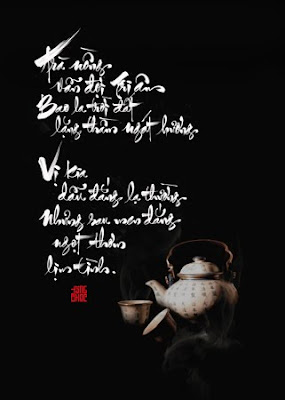 Trà nồng
vẫn đợi tri ân
Bao la trời đất
lắng thầm ngát hương
Vị kia
dẫu đắng lạ thường
Nhưng sau men đắng
ngọt thơm
lịm tình.